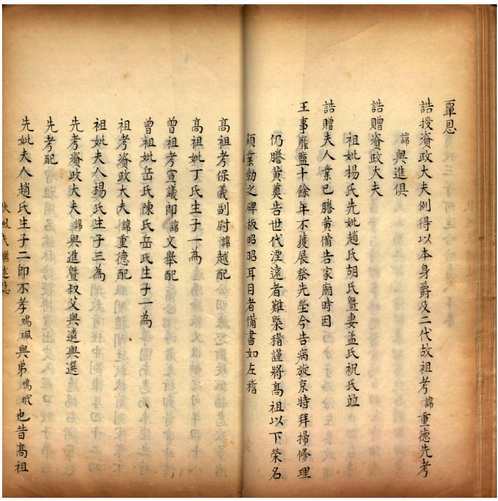 覃恩
誥授資政大夫例得以本身爵及二代故祖考諱重德先考
諱興進俱
誥贈資政大夫
祖妣楊氏先妣趙氏胡氏暨妻孟氏祝氏竝
誥贈夫人業已謄黃備告家廟時因
王事靡盬十餘年不獲展祭先塋今告病旋京特拜掃修理
仍謄黃奠告世代湮遠者難槩指謹將高祖以下榮名
碩業勒之碑板昭昭耳目者備書如左稽
高祖考保義副尉諱越配
高祖妣丁氏生子一為
曾祖考宣議郎諱文舉配
曾祖妣岳氏陳氏岳氏生子一為
祖考資政大夫諱重德配
祖妣夫人楊氏生子三為
先考資政大夫諱興進暨叔父興遠興選
先考配
先妣夫人趙氏生子二即不孝鳴珮與弟鳴也昔高祖